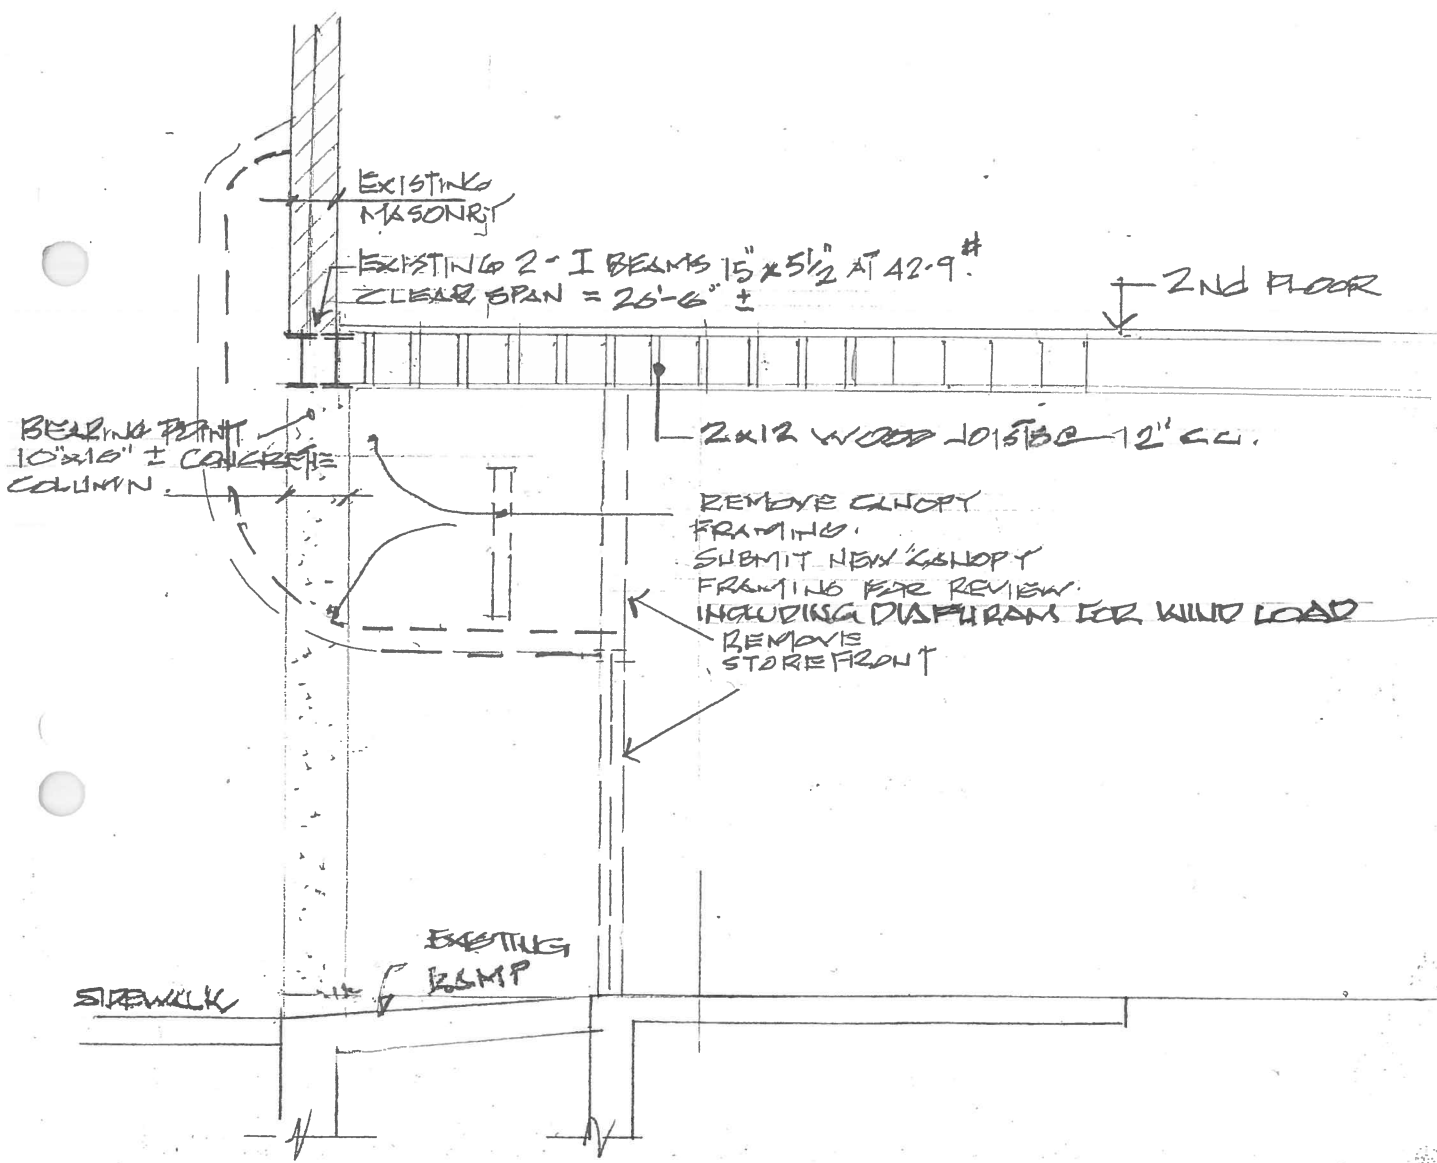 EXISTING
MASONRY
EXISTING 2 - I BEAMS 15" x 5 1/2" AT 42.9#
CLEAR SPAN = 26'-6" ±
2Nd FLOOR
BEARING POINT
10"x16" ± CONCRETE
COLUMN.
2x12 WOOD JOISTS @ 12" C.C.
REMOVE CANOPY
FRAMING.
SUBMIT NEW CANOPY
FRAMING FOR REVIEW.
INCLUDING DIAFHRAM FOR WIND LOAD
REMOVE
STOREFRONT
EXISTING
RAMP
SIDEWALK